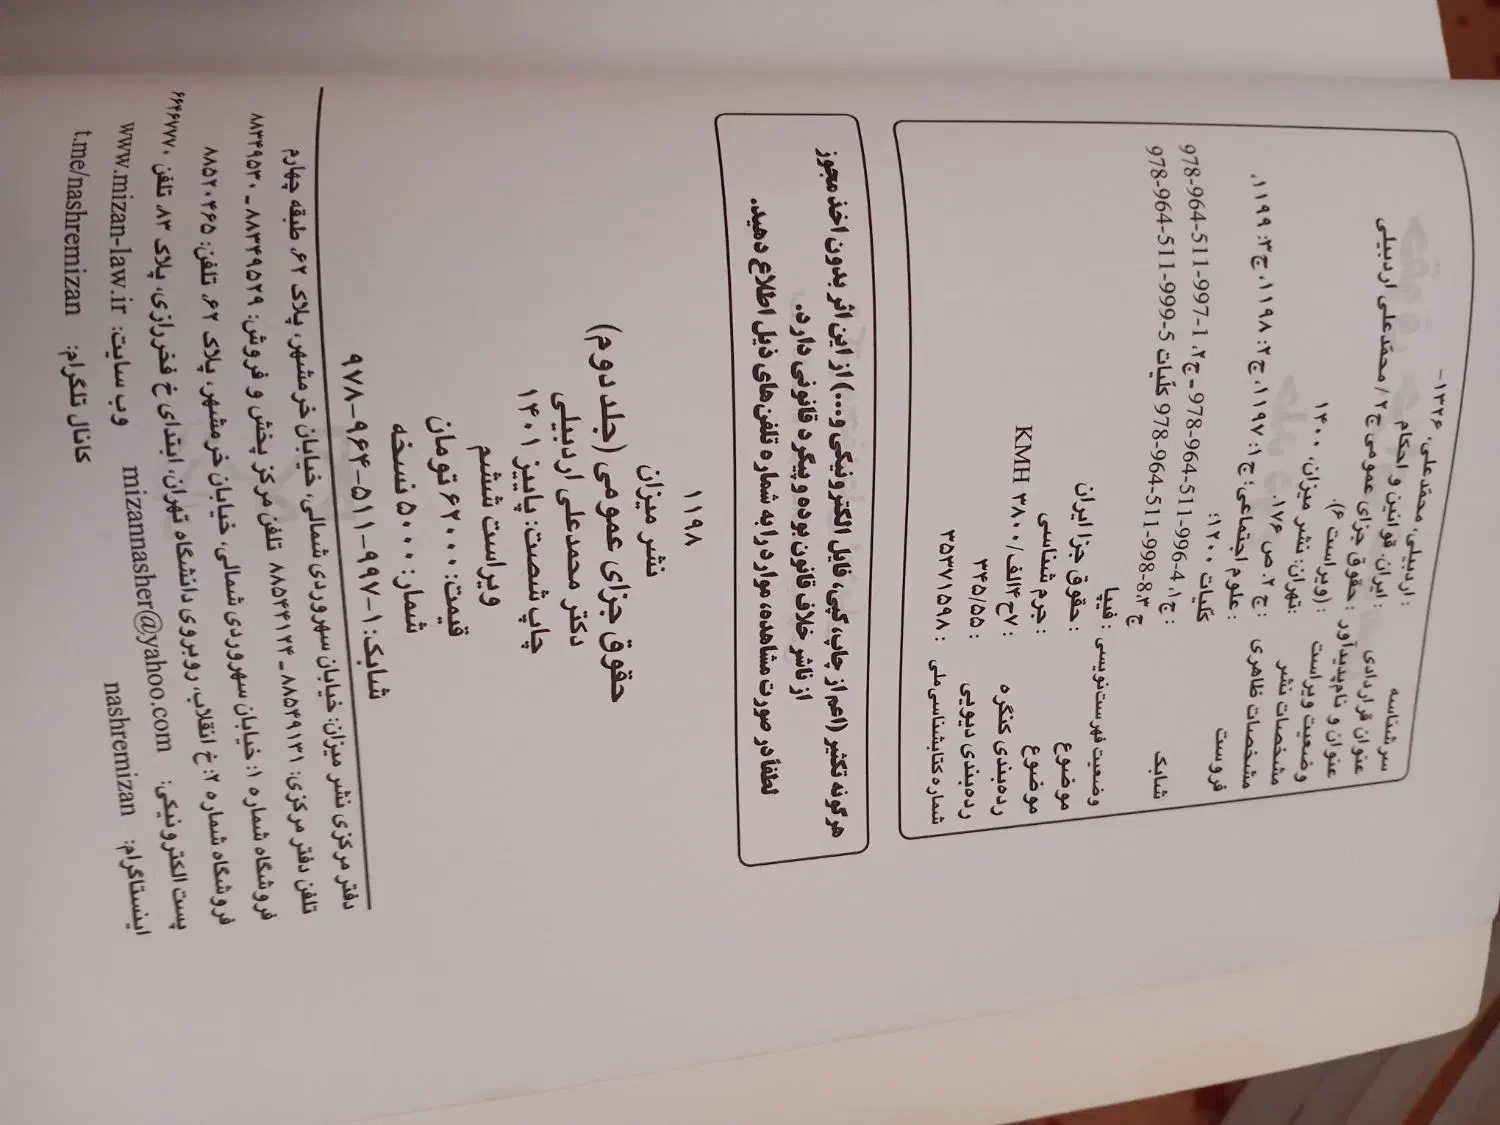 سرشناسه : اردبیلی، محمدعلی، ۱۳۲۶-
عنوان قراردادی : ایران. قوانین و احکام
عنوان و نام‌پدیدآور : حقوق جزای عمومی ج۲/ محمّدعلی اردبیلی
وضعیت ویراست : (ویراست ۶).
مشخصات نشر : تهران: نشر میزان، ۱۴۰۰
مشخصات ظاهری : ج ۲: ص ۱۷۶.
فروست : علوم اجتماعی؛ ج۱: ۱۱۹۷، ج۲: ۱۱۹۸، ج۳: ۱۱۹۹.
کلیات ۱۲۰۰؛
شابک : ج۱، 978-964-511-996-4 ـ ج۲، 978-964-511-997-1
ج۳، 978-964-511-998-8 کلّیات 978-964-511-999-5
وضعیت فهرست‌نویسی : فیپا
موضوع : حقوق جزا ایران
موضوع : جرم شناسی
رده‌بندی کنگره : ۷ح۴الف/۳۸۰۰ KMH
رده‌بندی دیویی : ۳۴۵/۵۵
شماره کتابشناسی‌ملی : ۳۵۳۷۱۵۹۸
هرگونه تکثیر (اعم از چاپ، کپی، فایل الکترونیکی و...) از این اثر بدون اخذ مجوز
از ناشر خلاف قانون بوده و پیگرد قانونی دارد.
لطفاً در صورت مشاهده، موارد را به شماره تلفن‌های ذیل اطلاع دهید.
۱۱۹۸
نشر میزان
حقوق جزای عمومی (جلد دوم)
دکتر محمدعلی اردبیلی
چاپ شصت: پاییز ۱۴۰۱
ویراست ششم
قیمت: ۶۲۰۰۰ تومان
شمار: ۵۰۰۰ نسخه
شابک: ۱-۹۹۷-۵۱۱-۹۶۴-۹۷۸
دفتر مرکزی نشر میزان: خیابان سهروردی شمالی، خیابان خرمشهر، پلاک ۶۲، طبقه چهارم
تلفن دفتر مرکزی: ۸۸۵۴۹۱۳۱ ـ ۸۸۵۴۴۱۲۴ تلفن مرکز پخش و فروش: ۸۸۳۴۹۵۲۹ ـ ۸۸۳۴۹۵۳۰
فروشگاه شماره ۱: خیابان سهروردی شمالی، خیابان خرمشهر، پلاک ۶۲، تلفن: ۸۸۵۲۰۴۶۵
فروشگاه شماره ۲: خ انقلاب، روبروی دانشگاه تهران، ابتدای خ فخررازی، پلاک ۸۳، تلفن ۶۶۴۶۷۷۷۰
پست الکترونیکی: mizannasher@yahoo.com وب سایت: www.mizan-law.ir
اینستاگرام: nashremizan کانال تلگرام: t.me/nashremizan